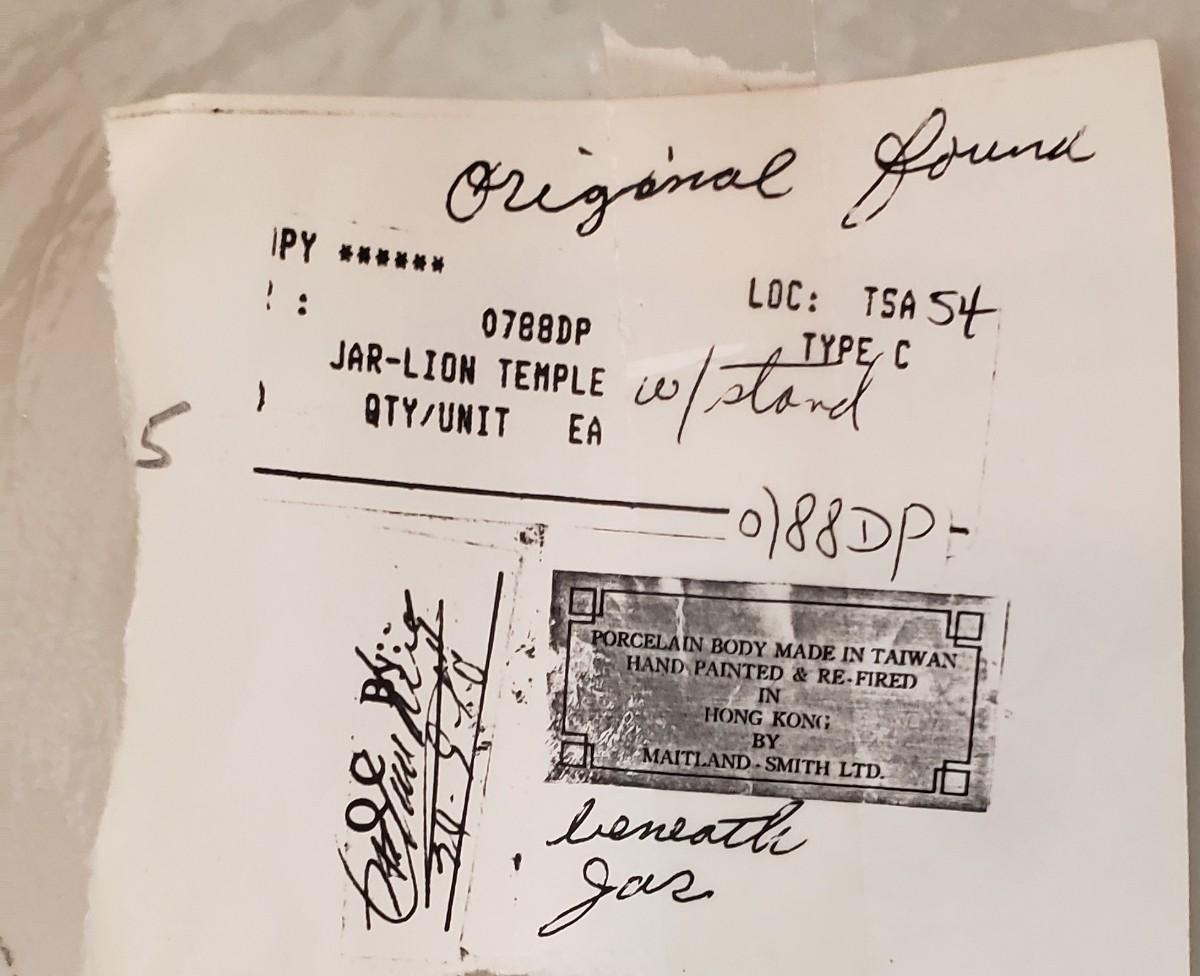 Original found
PY ******
:
0788DP
LOC: TSA 54
JAR-LION TEMPLE
TYPE C
w/stand
QTY/UNIT EA
5
0788DP -
PORCELAIN BODY MADE IN TAIWAN
HAND PAINTED & RE-FIRED
IN
HONG KONG
BY
MAITLAND-SMITH LTD.
beneath
jar
By: